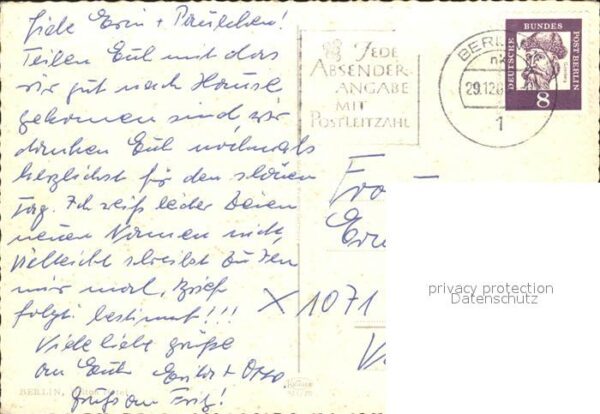 Liebe Erin + Paulchen!
Teilen Euch mit das
wir gut nach Hause
gekommen sind, wir
danken Euch nochmals
herzlichst für den schönen
Tag. Ich weiß leider Deinen
neuen Namen nicht,
vielleicht schreibst Du
mir mal, Brief
folgt bestimmt!!!
Viele liebe Grüße
an Euch + Otto.
Gruß an Fritz!
BERLIN,
JEDE
ABSENDER-
ANGABE
MIT
POSTLEITZAHL
BERLIN
29.12.6
1
DEUTSCHE BUNDESPOST BERLIN
8
Frau
X 1071
privacy protection
Datenschutz